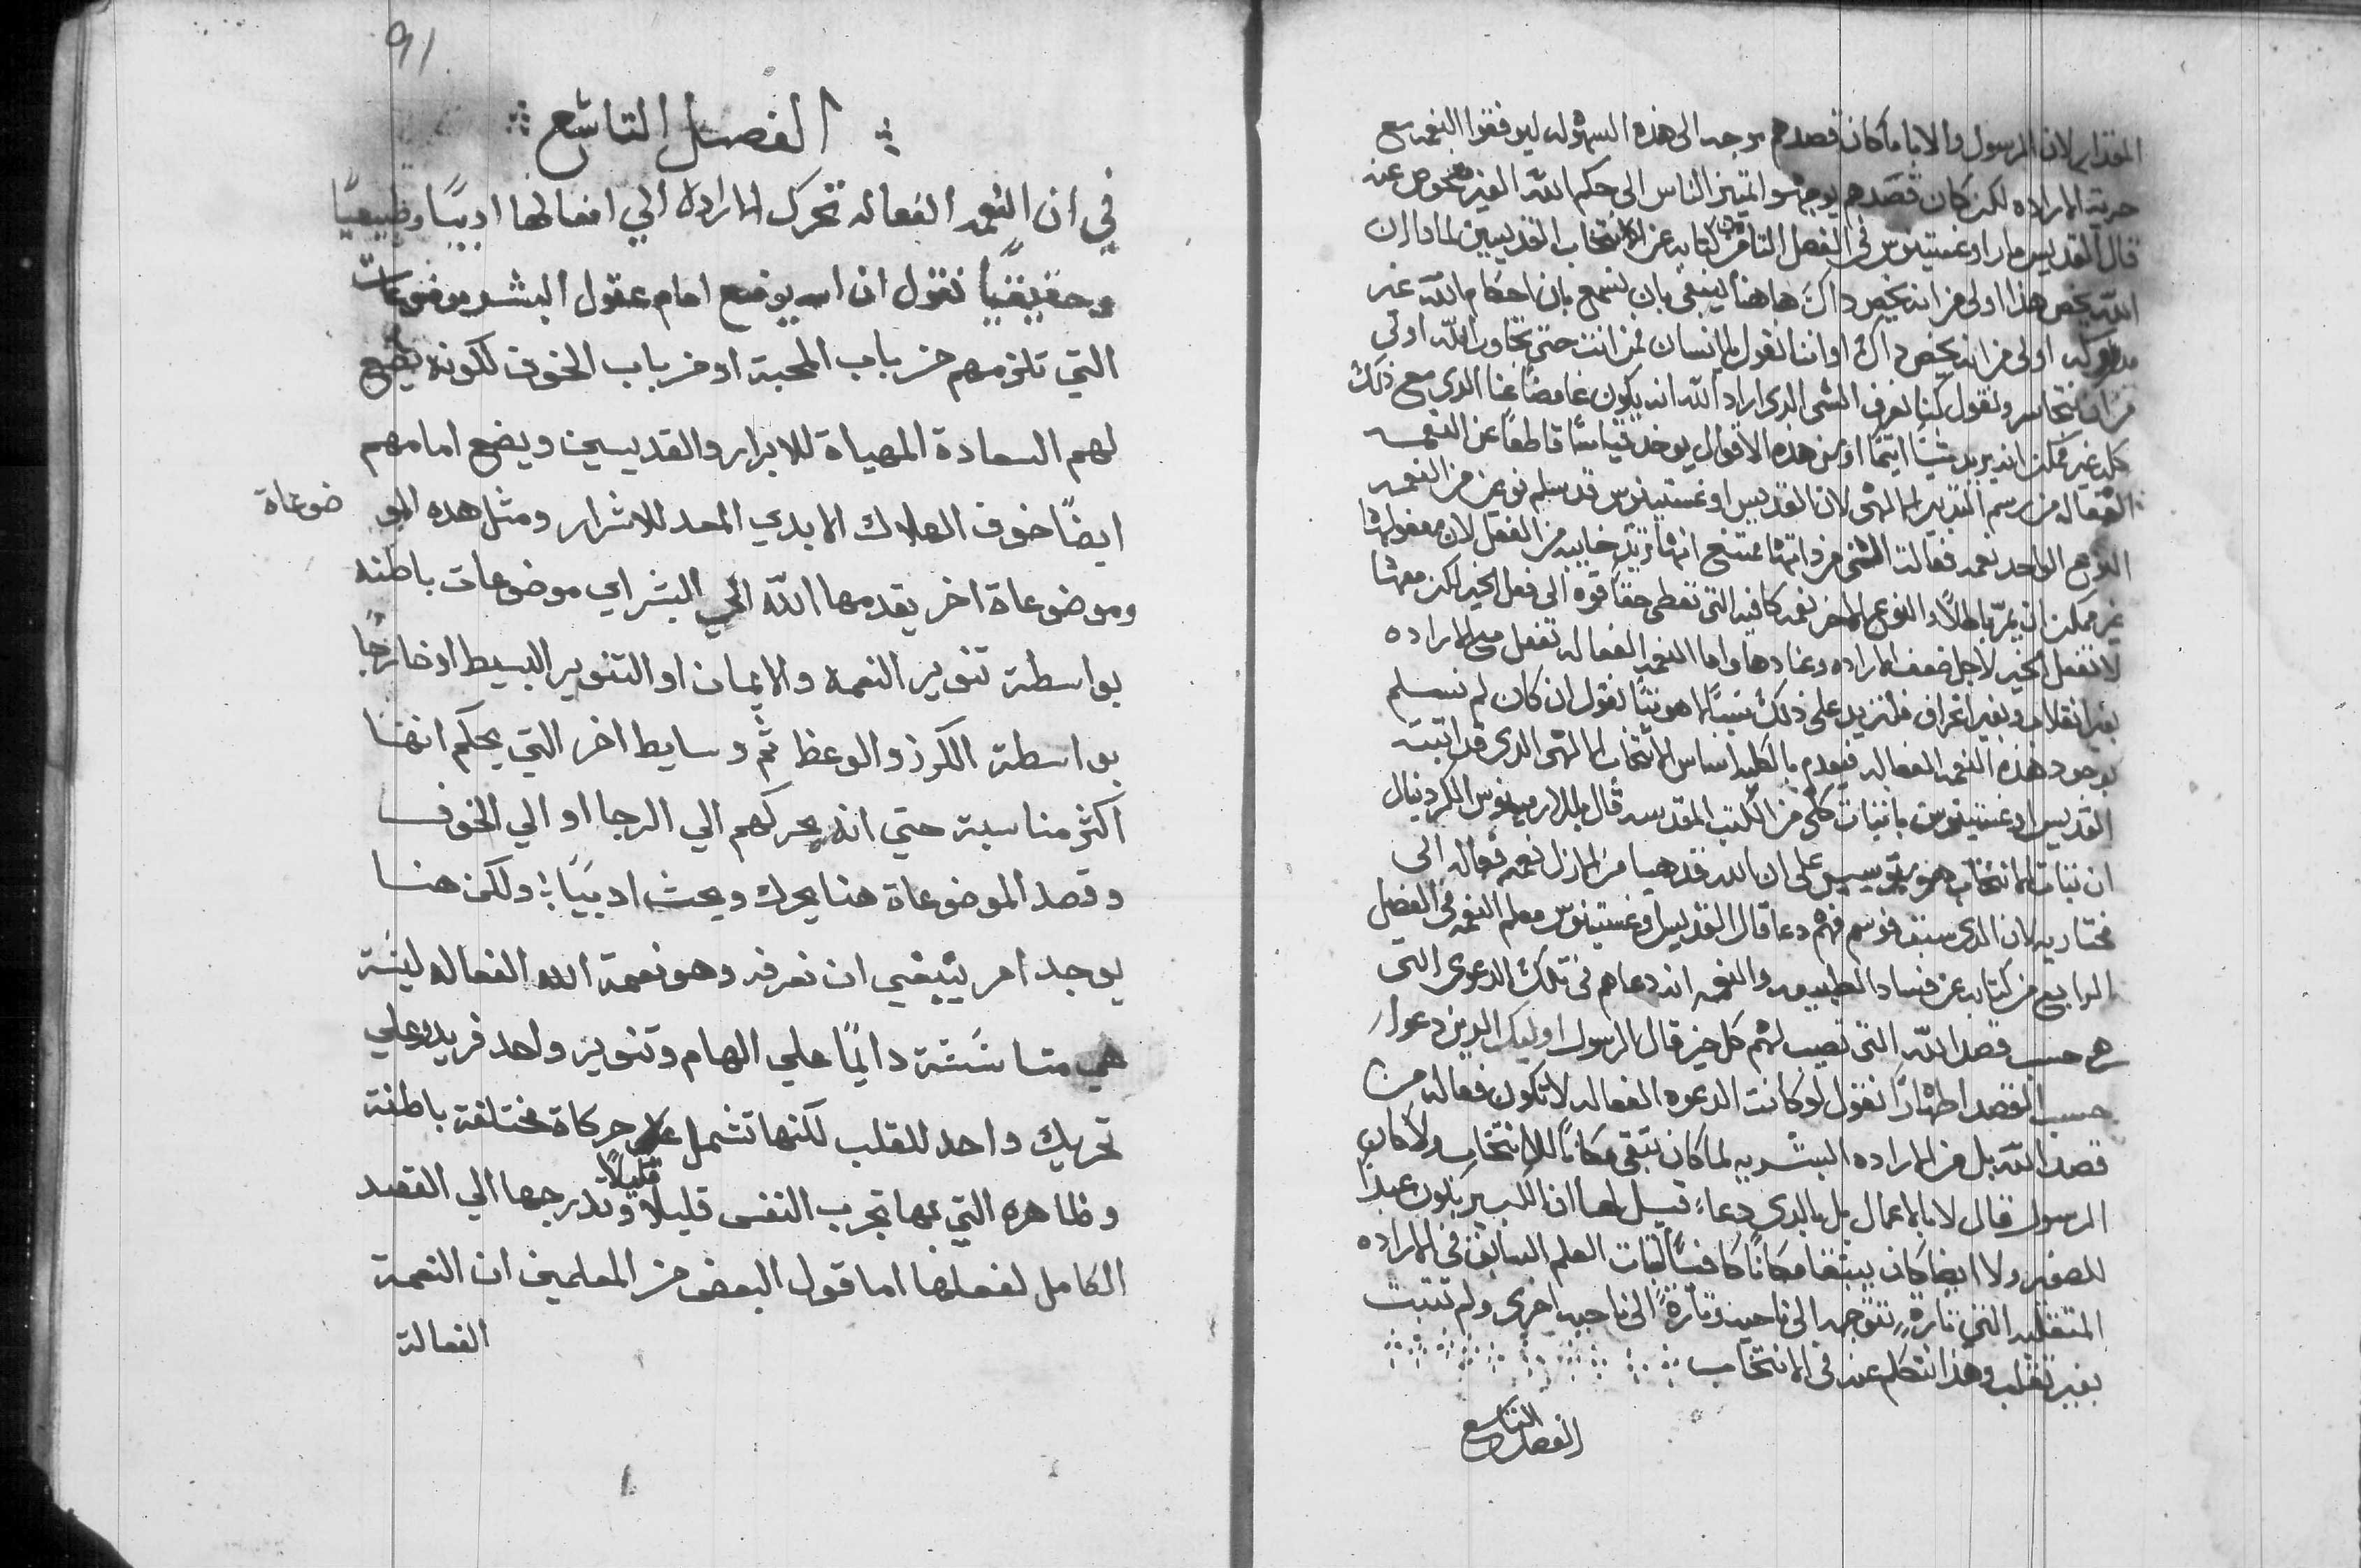 المقدار لان الرسول والابا ما كان قصدهم يوجه الى هذه السهوله ليوفقوا النعمه مع
حرية الاراده لكن كان قصدهم يوجهوا تمييز الناس الى حكم الله الغير مفحوص عنه
قال القديس مار اوغستينوس في الفصل الثامن من كتابه عن الانتخاب القديسين لماذا ان
الله يخص هذا اولى من انه يخص داك هاهنا ينبغي بان نسمع بان احكام الله غير
مدروكه اولى من انه يخص داك اواننا نقول يا انسان لمن انت حتى تجاوب الله اولى
من ان نتجاسر ونقول كنا نعرف الشي الدي اراد الله انه يكون غامضاً عنا الدي مع ذلك
كله غير ممكن انه يريد شياً اثيماً او من هده الاقوال يوخد قياساً قاطعاً عن النعمه
الفعاله من رسم التدبير الالهي لان القديس اوغستينوس قد سلم نوعين من النعمه
النوع الواحد نعمه فعالت الشي من داتها ممتنع انها ترتد خايبه من الفعل لان مفعولها
غير ممكن ان يمر باطلاً والنوع الاخر نعمه كافيه التي تعطى حقاً قوه الى فعل الخير لكن معها
لا تفعل الخير لاجل ضعف الاراده وعنادها واما النعمه الفعاله تفعل مع الاراده
بغير انقلاب وبغير انحراف فلنزيد على ذلك شياً لاهوتياً نقول ان كان لم نسلم
بوجود هذه النعمه الفعاله فيعدم بالكليه اساس الانتخاب الالهي الدي قد اثبته
القديس اوغستينوس باثبات كلي من الكتب المقدسه قال بللارمينوس الكردينال
ان ثبات الانتخاب هو موسس على ان الله قد هيا من الازل نعمه فعاله الى
مختاريه لان الدي سبق فوسم فهم دعا قال القديس اوغستينوس معلم النعمه في الفصل
الرابع من كتابه عن فساد الطبيعه والنعمه انه دعاهم في تلك الدعوى التي
هي حسب قصد الله التي تصيب لهم كل خير قال الرسول اوليك الدين دعوا
حسب القصد اطهاراً نقول لو كانت الدعوه الفعاله لا تكون فعاله من
قصد الله بل من الاراده البشريه لما كان تبقى مكاناً للانتخاب ولا كان
الرسول قال لا بالاعمال بل بالدي دعاء قيل لها ان الكبير يكون عبداً
للصغير ولا ايضا كان يبقا مكاناً كافياً لثبات العلم السابق في الاراده
المتقلبه التي تارة تتوجه الى ناحيه وتارة الى ناحيه اخرى ولم تثبت
بغير تقلب وهذا نتكلم عنه في الانتخاب
الفصل التاسع
91
الفصل التاسع
في ان النعمه الفعاله تحرك الاراده الي افعالها ادبيًا وطبيعيًا
وحقيقيًا نقول ان الله يوضع امام عقول البشر موضوعات
التي تلزمهم من باب المحبة او من باب الخوف لكونه يضع
لهم السعادة المهياة للابرار والقديسين ويضع امامهم
ايضًا خوف الهلاك الابدي المعد للاشرار ومثل هده المو ضوعاة
وموضوعاة اخر يقدمها الله الي البشر اي موضوعات باطنه
بواسطة تنوير النعمة والايمان او التنوير البسيط او خارجًا
بواسطة الكرز والوعظ ثم وسايط اخر التي يحكم انها
اكثر مناسبة حتي انه يحركهم الي الرجا او الي الخوف
وقصد الموضوعاة هنا يحرك ويحث ادبيًا ولكن هنا
يوجد امر ينبغي ان نعرفه وهو نعمة الله الفعاله ليسة
هي متاسسة دايمًا علي الهام وتنوير واحد فريد وعلي
تحريك واحد للقلب لكنها تشمل علي حركاة مختلفة باطنة
وظاهره التي بها تجرب النفس قليلا قليلاً وتدرجها الي القصد
الكامل لفعلها اما قول البعض من المعلمين ان النعمة
الفعالة